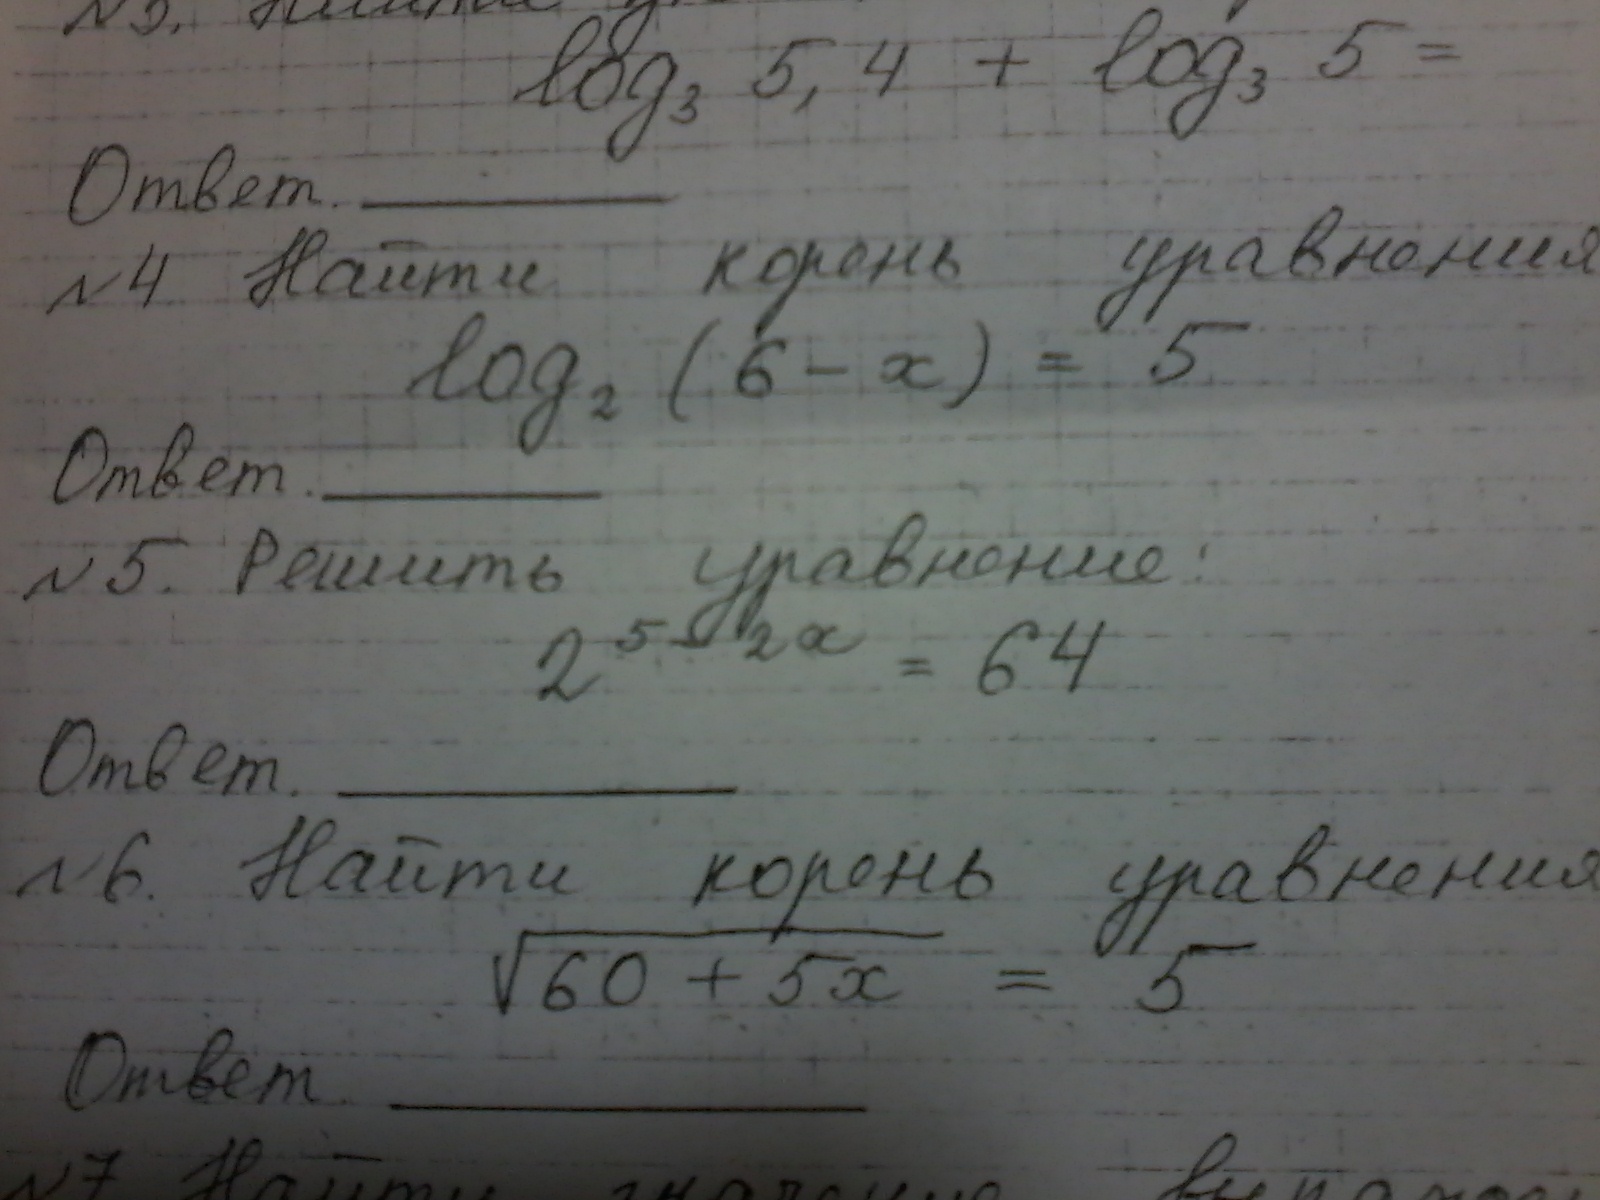 №3. Найти
log₃ 5,4 + log₃ 5 =
Ответ.
№4 Найти корень уравнения
log₂ (6 - x) = 5
Ответ.
№5. Решить уравнение:
2^{5-2x} = 64
Ответ.
№6. Найти корень уравнения
√(60 + 5x) = 5
Ответ
№7 Найти значение